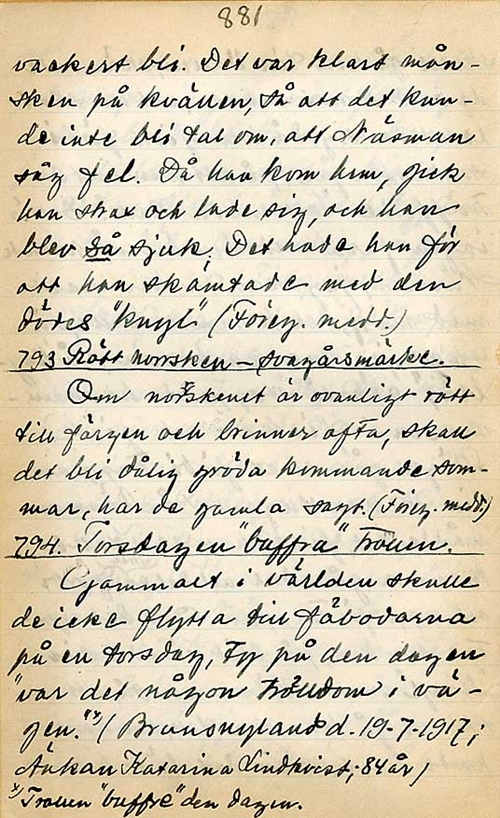 881
vackert bli. Det var klart mån-
sken på kvällen, så att det kun-
de inte bli tal om, att Näsman
såg fel. Då han kom hem, gick
han strax och lade sig, och han
blev så sjuk. Det hade han för
att han skämtade med den
dödes "knyl" (Föreg. medd.)
793 Rött norrsken – svagårsmärke.
Om norrskenet är ovanligt rött
till färgen och brinner ofta, skall
det bli dålig gröda kommande som-
mar, har de gamla sagt. (Föreg. medd.)
794. Torsdagen "buffra" trollen.
Gammalt i världen skulle
de icke flytta till fäbodarna
på en torsdag, ty på den dagen
"var det någon trolldom i vä-
gen." x) (Brunsnyland d. 19-7-1917;
Änkan Katarina Lindkvist; 84 år)
x) Trollen "buffre" den dagen.